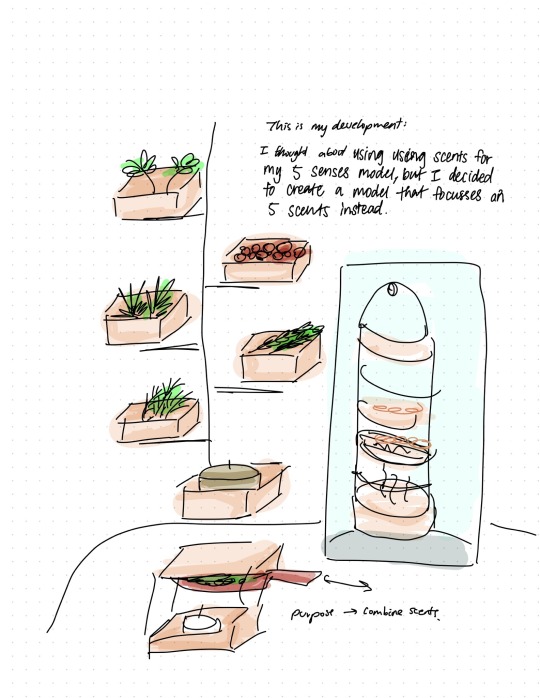 This is my development:
I thought about using using scents for
my 5 senses model, but I decided
to create a model that focusses on
5 scents instead.
purpose → combine scents.